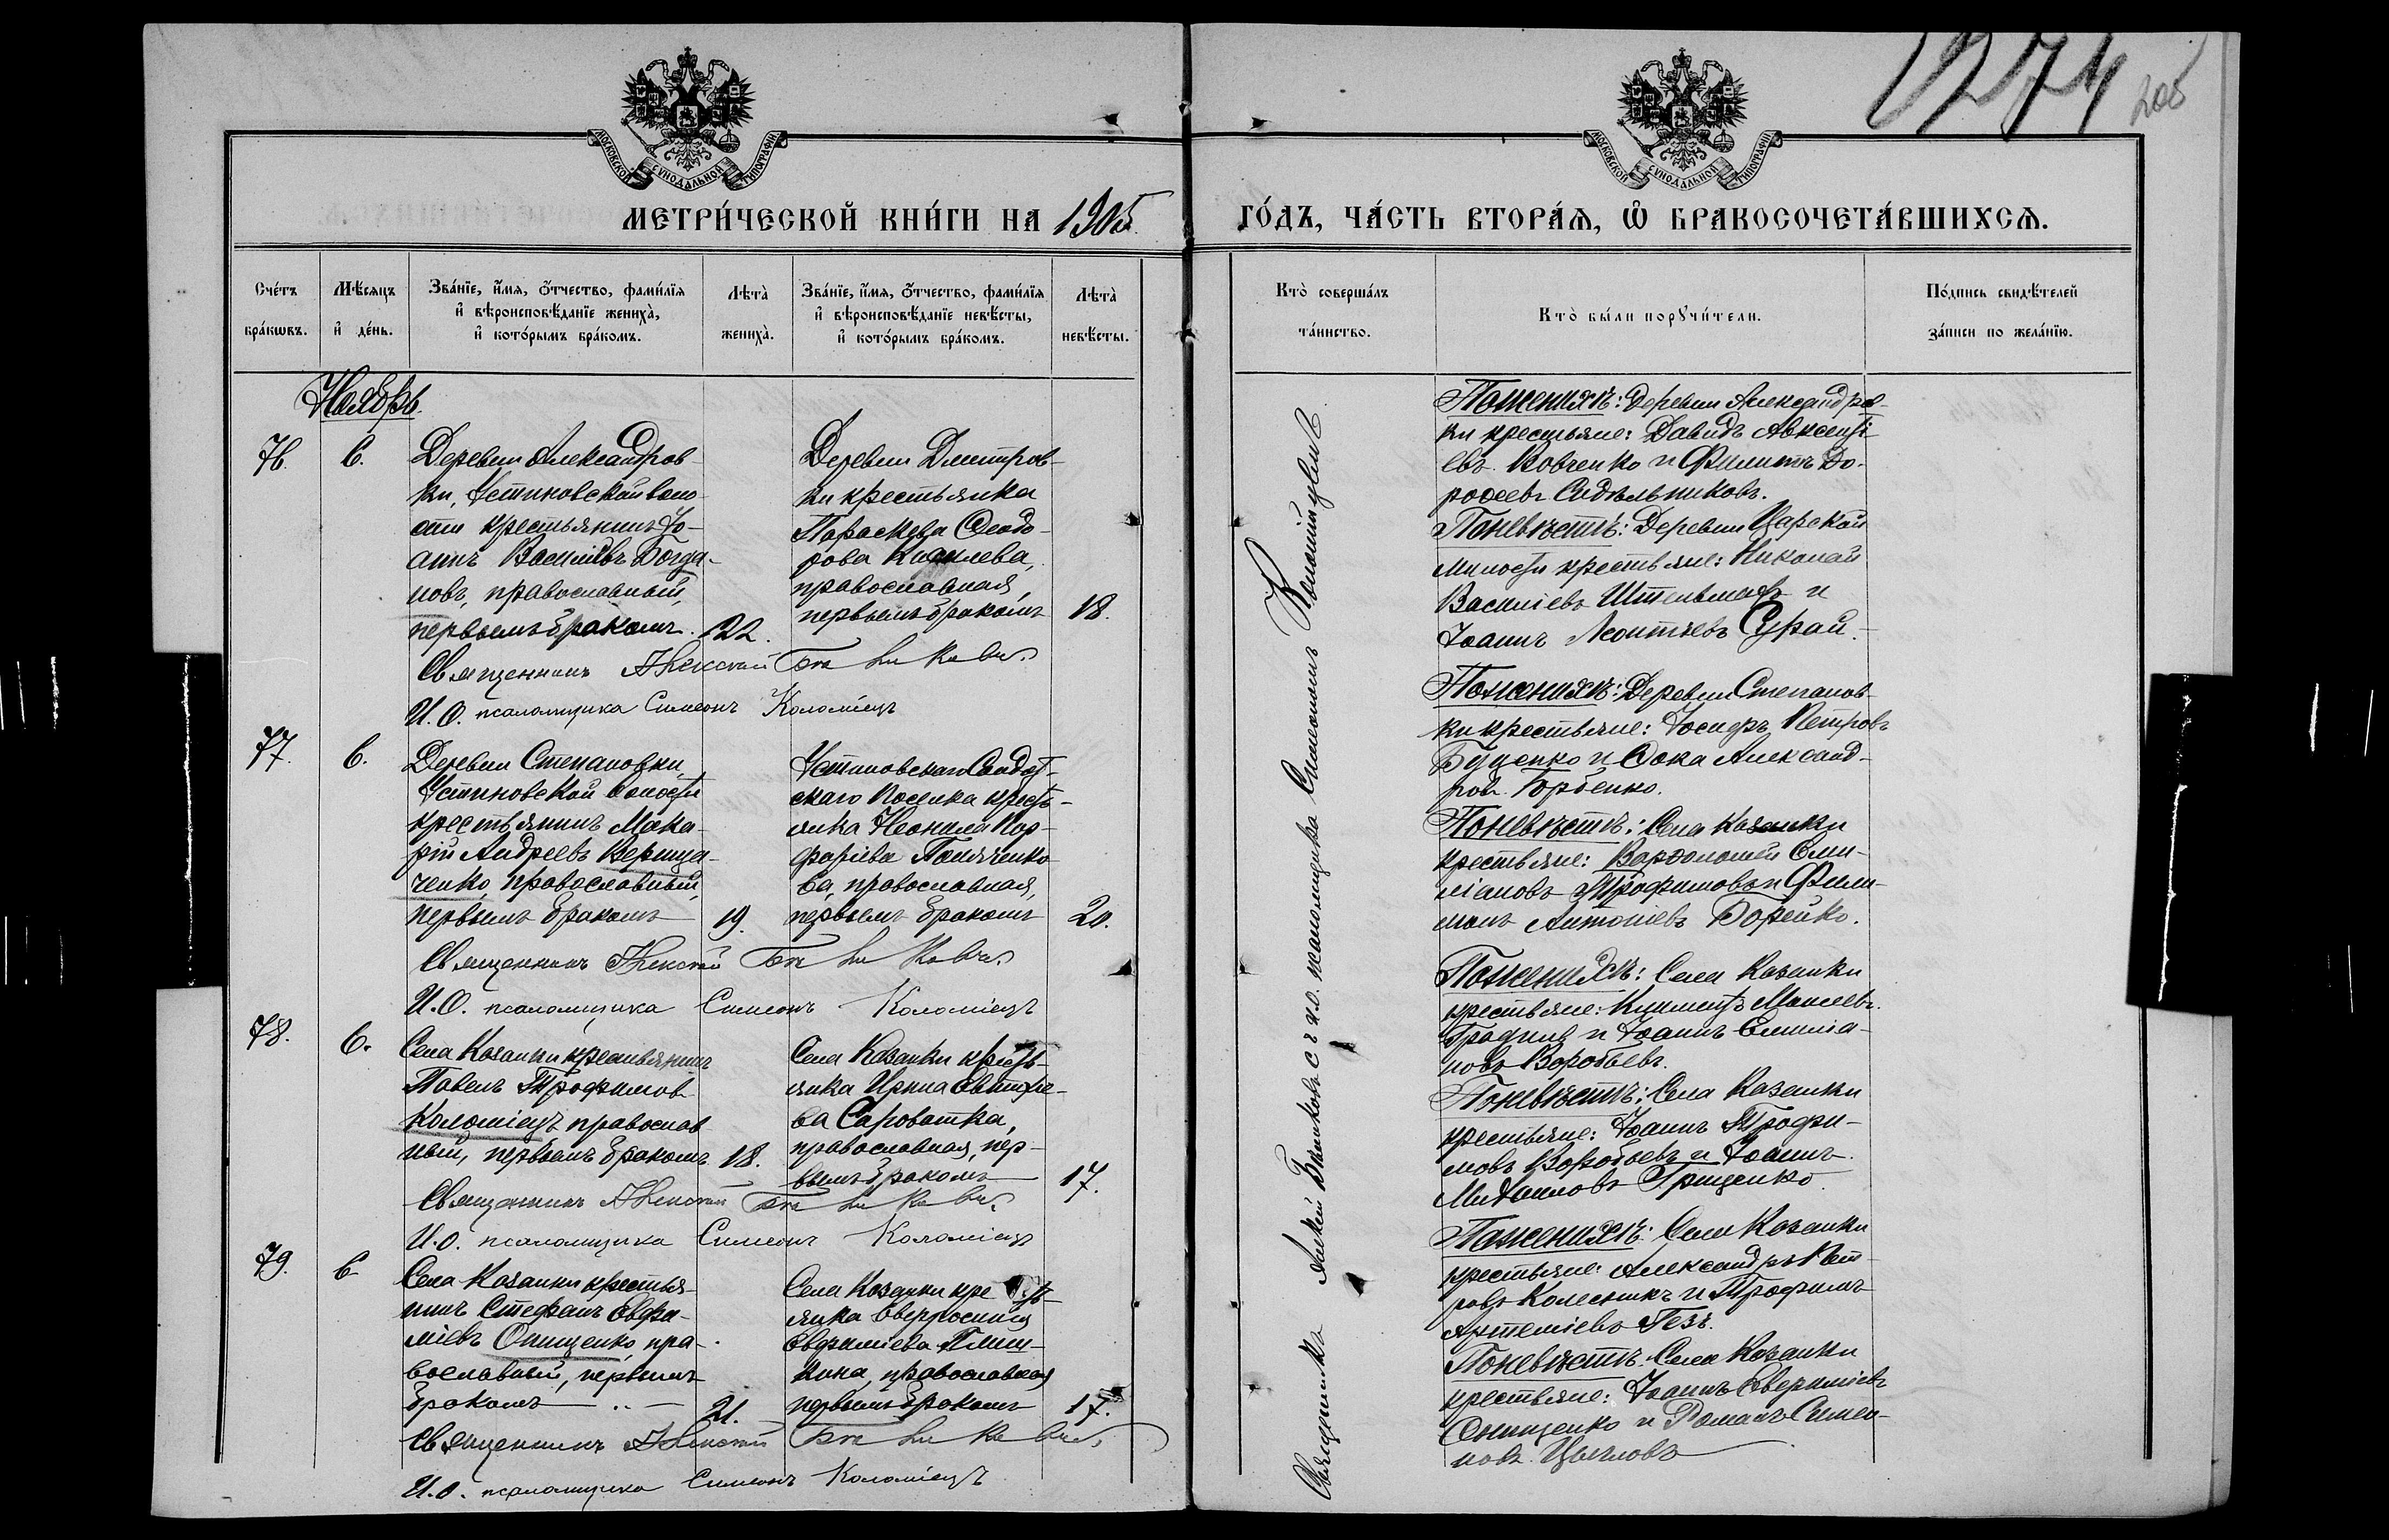 1274
205
МОСКОВСКОЙ СѴНОДАЛЬНОЙ ТИПОГРАФІИ
МОСКОВСКОЙ СѴНОДАЛЬНОЙ ТИПОГРАФІИ
МЕТРИ́ЧЕСКОЙ КНИ́ГИ НА 1905
ГО́ДЪ, ЧА́СТЬ ВТОРА́Ѧ, Ѽ БРАКОСОЧЕТА́ВШИХСѦ.
Сче́тъ бра́кѡвъ.
Мѣ́сяцъ и҆ де́нь.
Зва́нїе, и҆́мя, ѻ҆́тчество, фами́лїя
и҆ вѣроисповѣ́данїе жениха̀,
и҆ кото́рымъ бра́комъ.
Лѣта̀ жениха̀.
Зва́нїе, и҆́мя, ѻ҆́тчество, фами́лїя
и҆ вѣроисповѣ́данїе невѣ́сты,
и҆ кото́рымъ бра́комъ.
Лѣта̀ невѣ́сты.
Кто̀ соверша́лъ
та́инство.
Кто̀ бы́ли порꙋчи́тели.
По́дпись свидѣ́телей
за́писи по жела́нїю.
Ноябрь.
76. 6.
Деревни Александров-
ки, Устиновской воло-
сти крестьянинъ Іо-
аннъ Василіевъ Богда-
новъ, православный,
первымъ бракомъ. 22.
Деревни Дмитров-
ки крестьянка
Параскева Ѳеодо-
рова Киселева,
православная,
первымъ бракомъ 18.
Священникъ
И.О. псаломщика Симеонъ Коломіецъ
77. 6.
Деревни Степановки,
Устиновской волости
крестьянинъ Мака-
рій Андреевъ
ченко, православный,
первымъ бракомъ 19.
Устиновскаго
скаго поселка крестъ-
янка Неонила Пор-
фиріева
ва, православная,
первымъ бракомъ 20.
Священникъ
И.О. псаломщика Симеонъ Коломіецъ
78. 6.
Села Казанки крестьянинъ
Павелъ Трофимовъ
Коломіецъ православ
ный, первымъ бракомъ 18.
Села Казанки кресть-
янка Ирина Евтихіе-
ва Сароватка,
православная, пер-
вымъ бракомъ 17.
Священникъ
И.О. псаломщика Симеонъ Коломіецъ
79. 6
Села Казанки крестья-
нинъ Стефанъ Евфи-
міевъ Онищенко, пра-
вославный, первымъ
бракомъ 21.
Села Казанки кресть-
янка Евфросинія
Евфиміева
кина, православная
первымъ бракомъ 17.
Священникъ
И.О. псаломщика Симеонъ Коломіецъ
Священникъ Алексій Бѣликовъ съ и.о. псаломщика Симеономъ Коломійцемъ
По женихѣ: Деревни Александров-
ки крестьяне: Давидъ Авксенті-
евъ Вовченко и Филиппъ До-
роѳеевъ Сидѣльниковъ.
По невѣстѣ: Деревни Царской
милости крестьяне: Николай
Василіевъ Штельмахъ и
Іоаннъ Леонтіевъ Сурай.
По женихѣ: Деревни Степанов-
ки крестьяне: Іосифъ Петровъ
Буценко и Ѳока Александ-
ровъ Горбенко.
По невѣстѣ: Села Казанки
крестьяне: Варѳоломей Еми-
ліановъ Трофимовъ и Фили-
монъ Антоніевъ Борейко.
По женихѣ: Села Казанки
крестьяне: Климентъ Моисеевъ
и Іоаннъ Емиліа-
новъ Воробьевъ.
По невѣстѣ: Села Казанки
крестьяне: Іоаннъ Трофи-
мовъ Воробьевъ и Іоаннъ
Михаиловъ Грищенко.
По женихѣ: Села Казанки
крестьяне: Александръ Пет-
ровъ Колесникъ и Трофимъ
Артеміевъ Гезъ.
По невѣстѣ: Села Казанки
крестьяне: Іоаннъ Евфиміевъ
Онищенко и Романъ Симео-
новъ